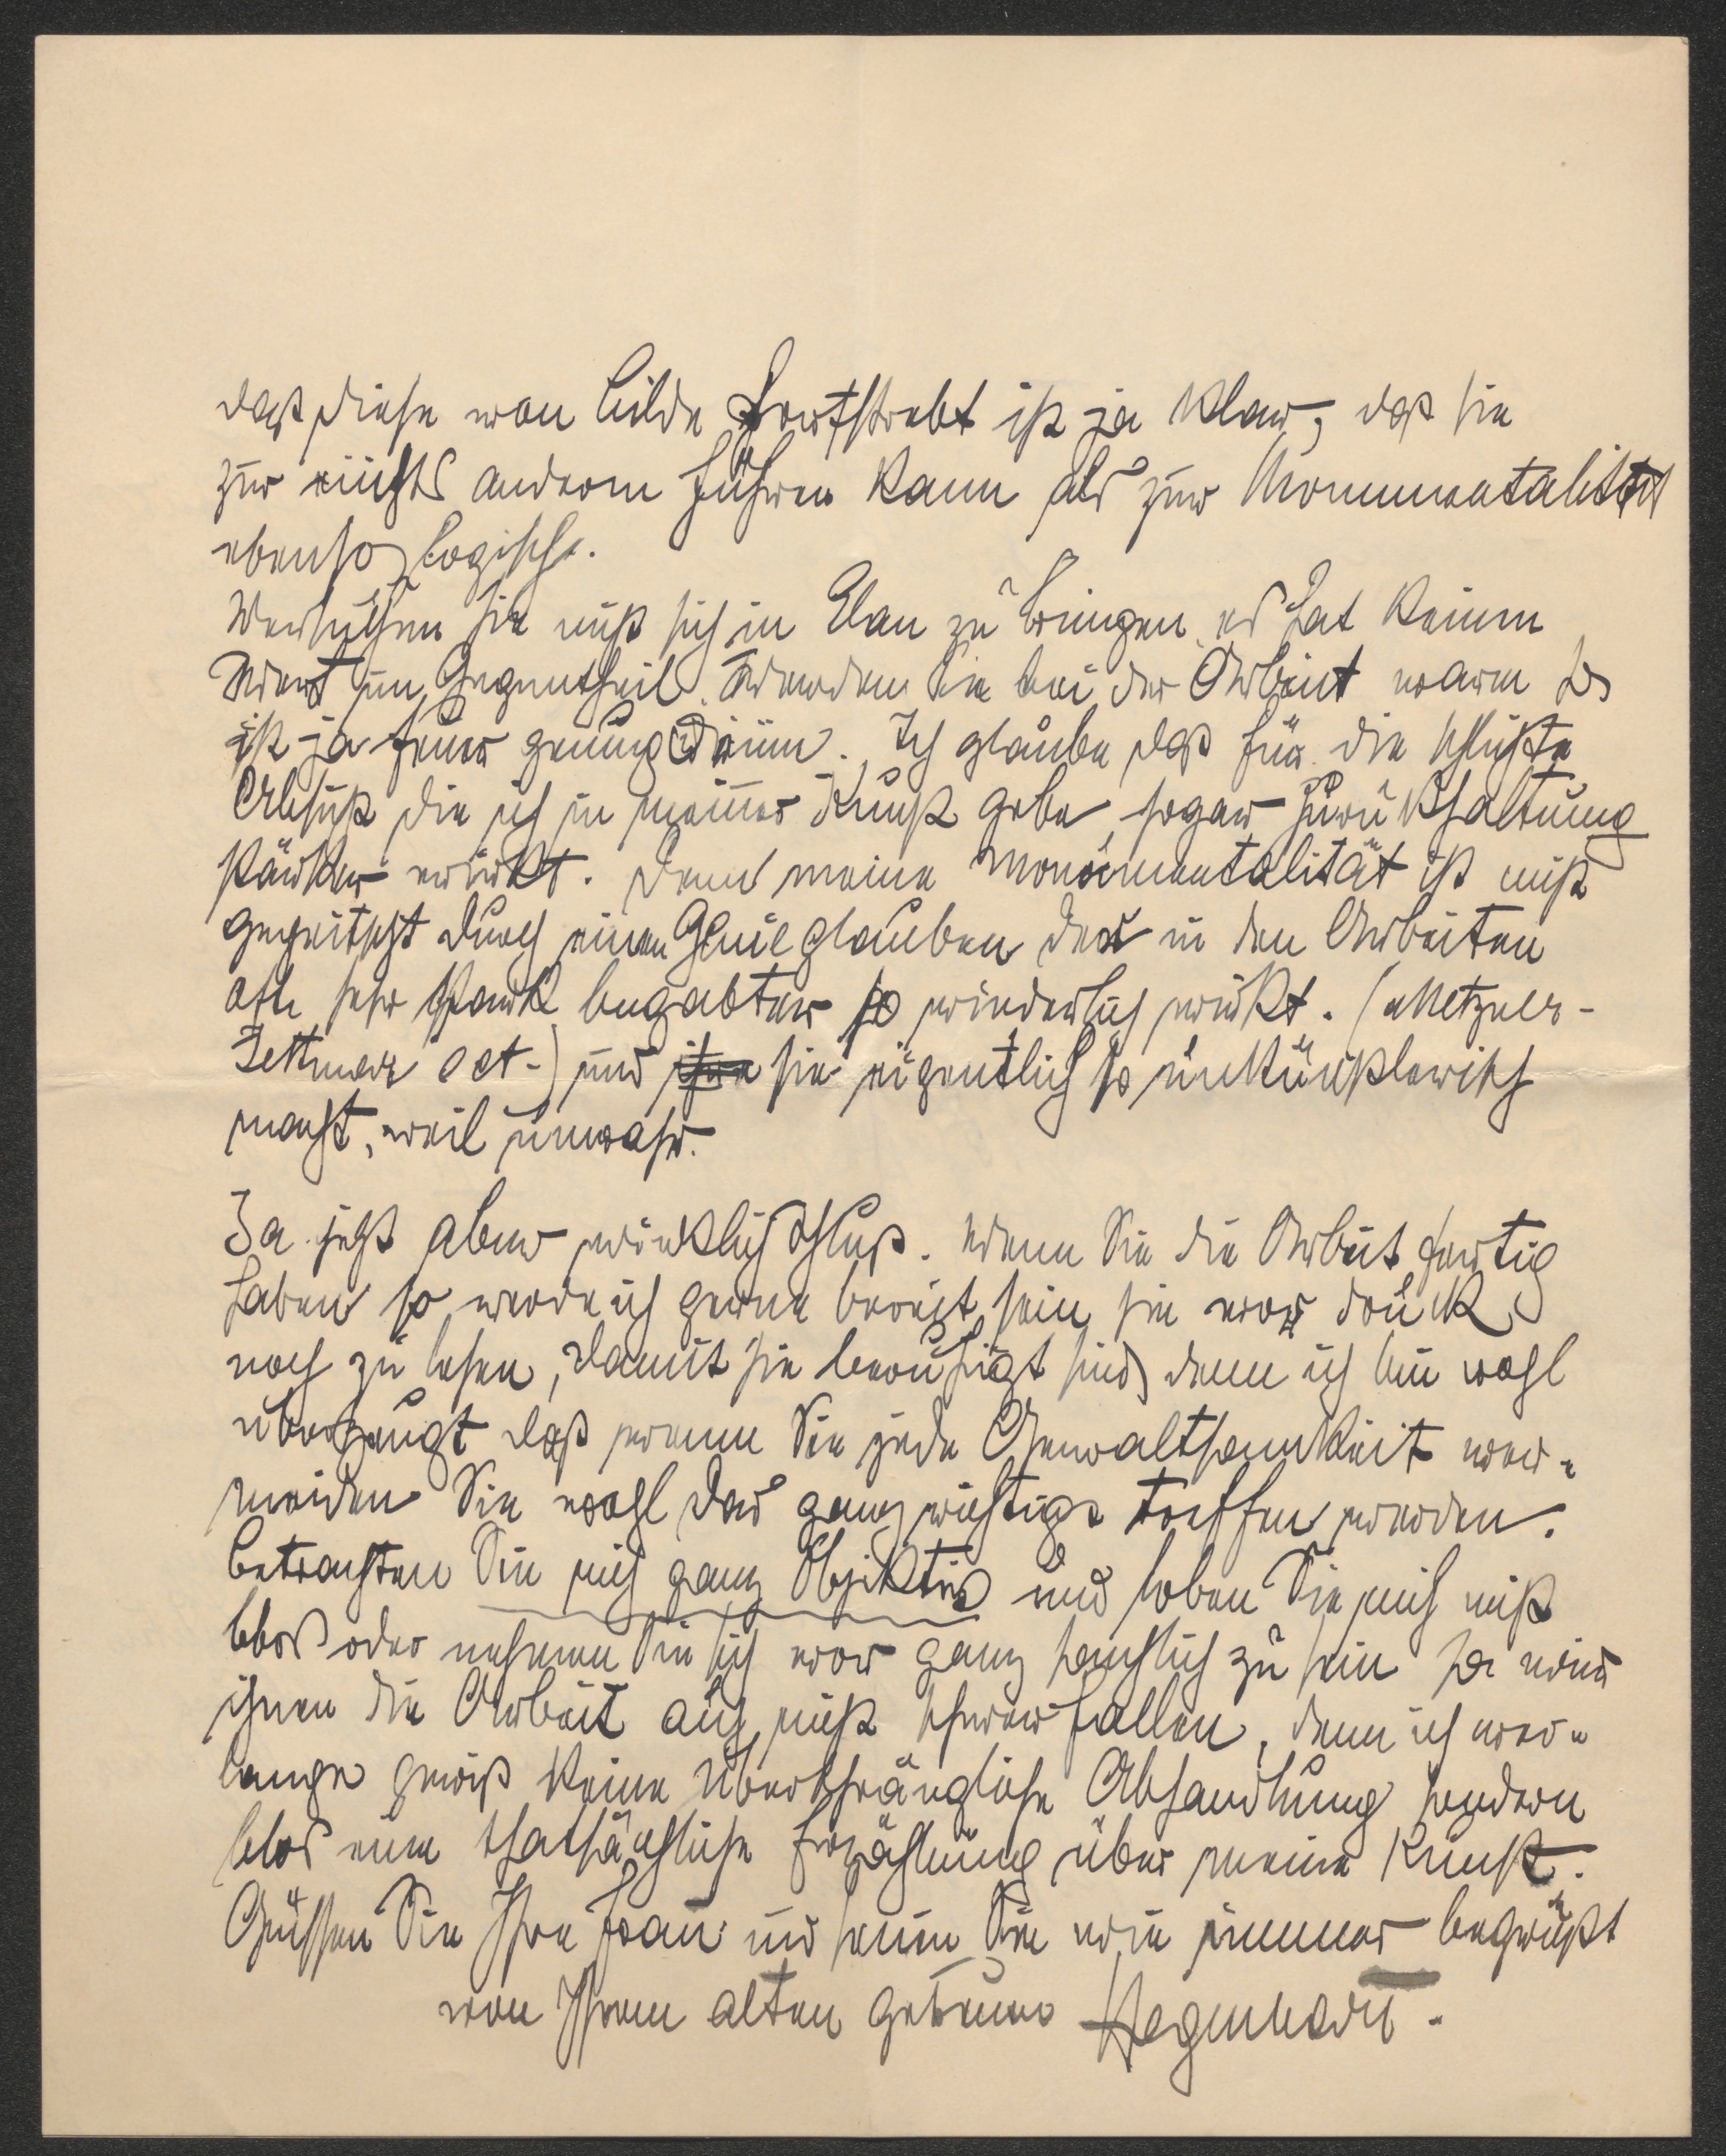 daß diese von Bilde fortstrebt ist ja klar, daß sie
zur nichts anderm führen kann als zur Monumentalität
ebenso logisch.
Versuchen sie nicht sich in Elan zu bringen es hat keinen
Wert im Gegentheil. Werden Sie bei der Arbeit warm Es
ist ja feuer genug drinn. Ich glaube daß für die
Absicht die ich in meiner Kunst gebe, sogar Zurükhaltung
stärker wirkt. Denn meine Monumentalität ist nicht
gepeitscht durch einen Genieglauben der in den Arbeiten
oft sehr stark begabter so wiederlich wirkt. (Metzner-
Zettmar ect-) und sie eigentlich so unkünstlerisch
macht, weil unwahr.
Ja jetzt aber wirklich Schluß. Wenn Sie die Arbeit fertig
haben so werde ich gerne bereit sein sie vor druck
noch zu lesen, damit sie beruhigt sind denn ich bin wohl
überzeugt daß wenn Sie jede Gewaltsamkeit ver-
meiden Sie wohl das ganz richtige treffen werden.
Betrachten Sie mich ganz Objektiv und loben Sie mich nicht
blos oder nehmen Sie sich vor ganz sachlich zu sein so wird
ihnen die Arbeit auch nicht schwer fallen, denn ich ver-
lange gewiß keine überschwängliche Abhandlung sondern
blos eine thatsächliche Erzählung über meine Kunst.
Grüssen Sie Ihre Frau und seien Sie wie immer begrüßt
von Ihrem alten getreuen Hegenbart.